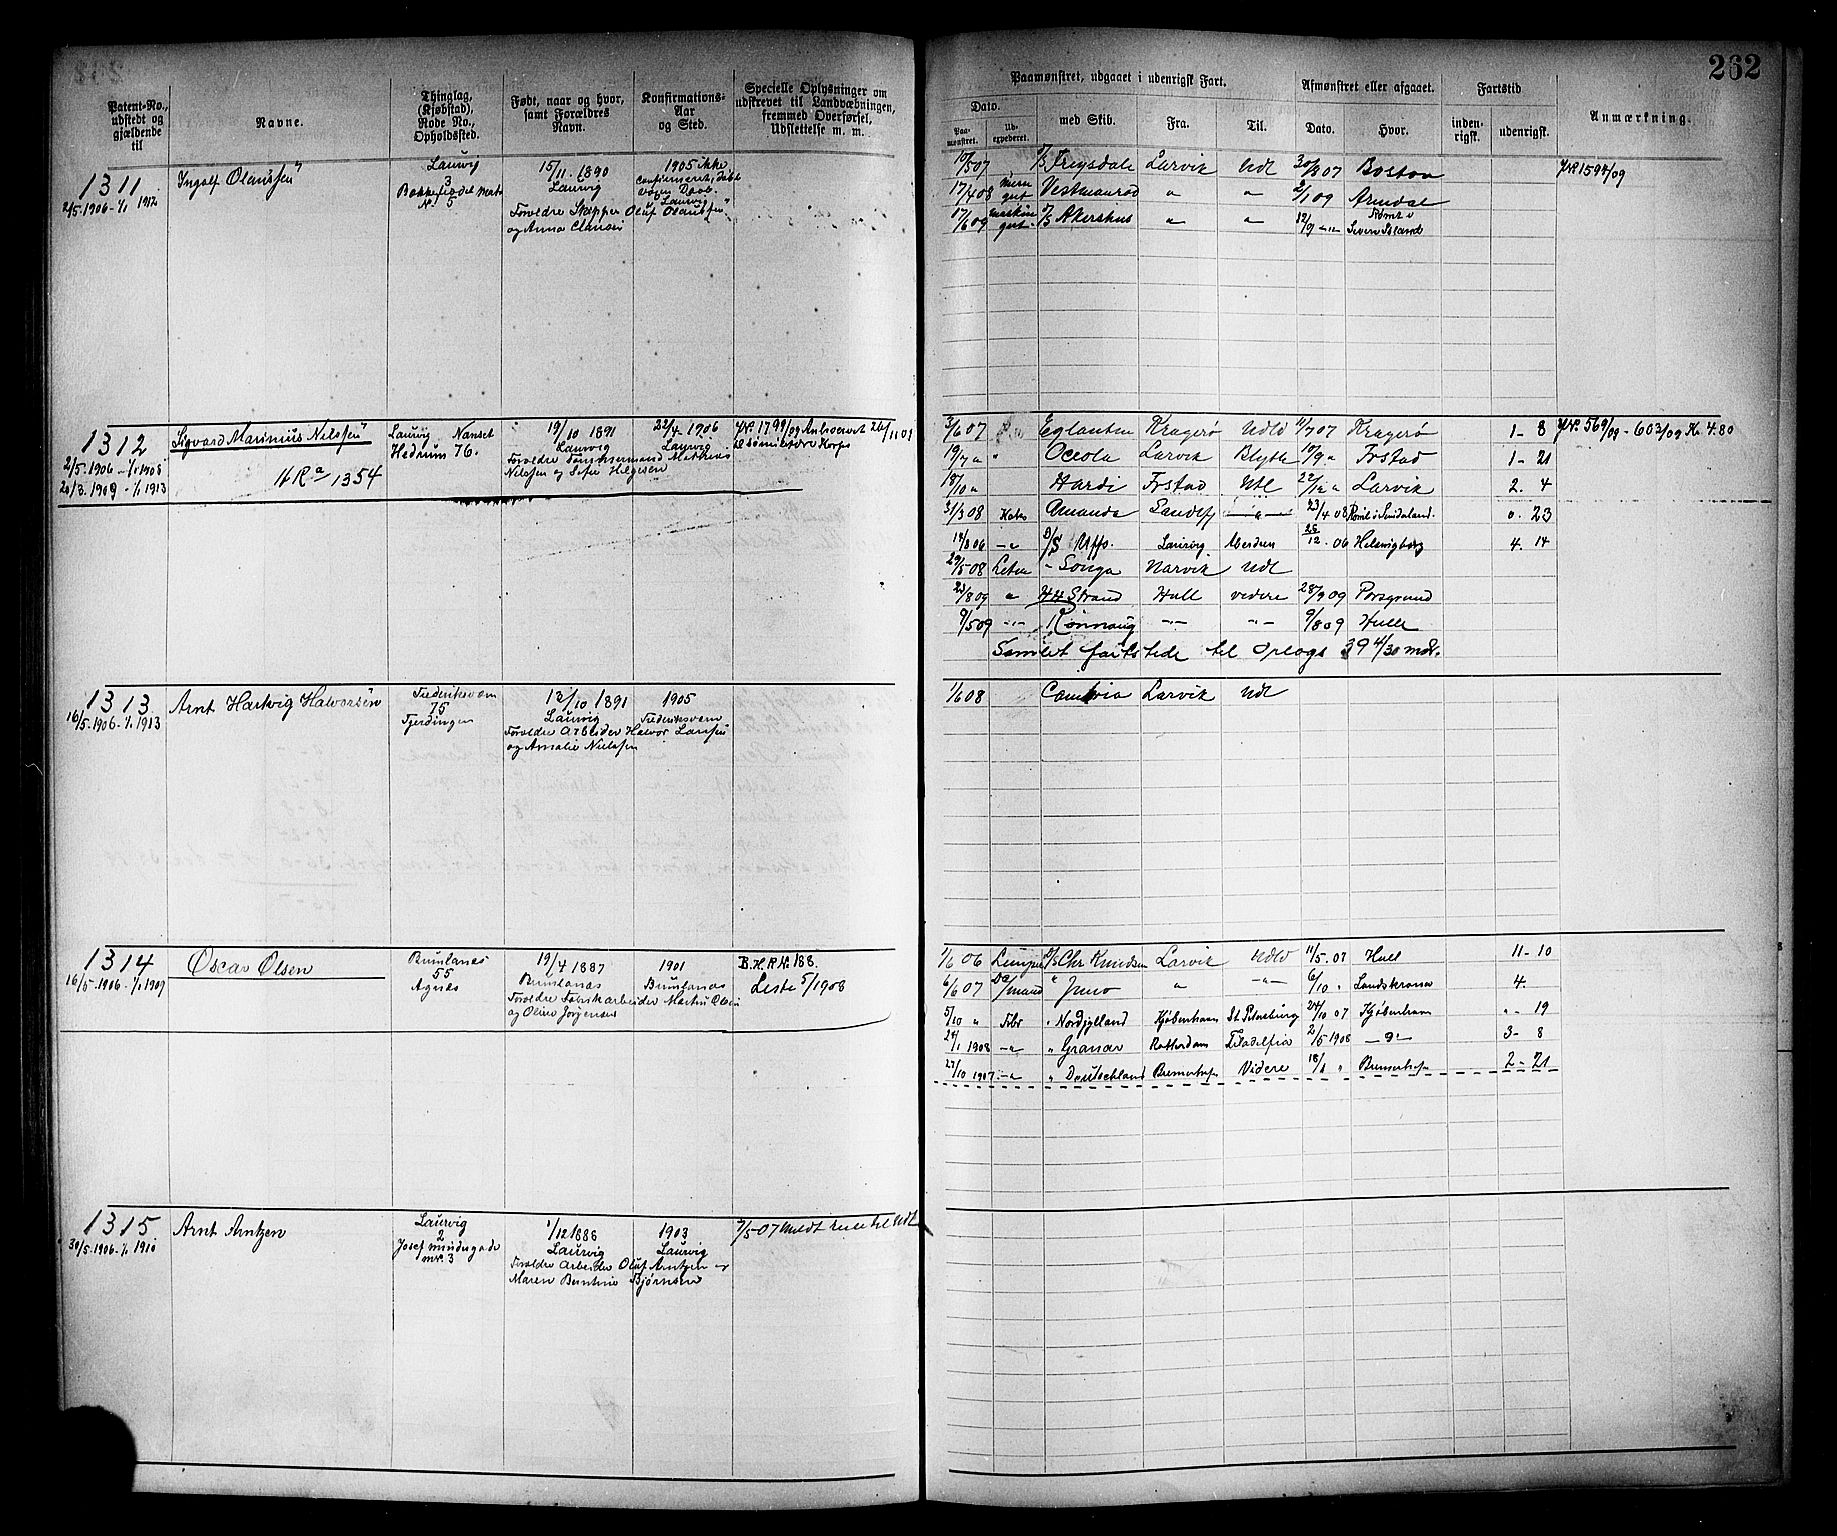 262
Patent-No., udstedt og gjældende til
Navne.
Thinglag, (Kjøbstad), Rode No., Opholdssted.
Født, naar og hvor, samt Forældres Navn.
Konfirmations-Aar og Sted.
Specielle Oplysninger om udskrevet til Landvæbningen, fremmed Overførsel, Udslettelse m. m.
Paamønstret, udgaaet i udenrigsk Fart.
Dato.
Paamønstret.
Udexpederet.
med Skib.
Fra.
Til.
Afmønstret eller afgaaet.
Dato.
Hvor.
Fartstid
indenrigsk.
udenrigsk.
Anmærkning.
1311
2/5.1906-1/1 1912
Ingolf Olaussen
Laurvig
3
No 5
15/11. 1890
Laurvig
Forældre Skipper Oluf Olaussen
og Anna Clausen
1905 ikke
confirmeret,
Laurvig
10/5 07 Freysdale Larvik Udl 30/8 07 Boston
JNR 1594/09
17/4 08 Vestmanrød " " 2/1 09 Arendal
17/6 09 maskin gut D/S Akershus " " 12/9 Rømt i
Seven Islands
1312
2/5.1906-1/1 1908
20/3.1909-1/1 1913
Sigvard Marinius Nilssen
HRa 1354
Laurvig Nanset
Hedrum 76.
19/10 1891
Laurvig
Nilssen og Sofie Helgesen
22/4. 1906
Laurvig
JNr. 1799/09
3/6 07 Eglanten Kragerø Udld 11/7 07 Kragerø 1-8
JNr. 569/09 - 603/09 Kr. 4.80
19/7 " Oceola Larvik Blyth 10/9 " Frstad 1-21
18/10 " Hardi Frstad Utl 22/12 " Larvik 2. 4
31/3 08 Koks Amanda Sandefj -"- 23/4 08 Rømt i Sundaland. 0. 23
14/8 06 -"- D/S Uffo. Laurvig Aberdeen 25/12. 06 Helsingborg 4. 14
29/5 08 Letm - Songa Narvik Udl
23/8 09 " HH Strand Hull videre 28/9 09 Porsgrund
9/5 09 -"- Rønnaug -"- -"- 9/8 09 Hull
Samlet fartstid til Oplags 39 4/30 mdr.
1313
16/5.1906-1/1.1913
Arnt Hartvig Halvorsen
Frederiksværn
75
Fjerdingen
12/10 1891
Laurvig
Forældre Arbeider Halvor Larsen
og Amalie Nielsen
1905
Frederiksværn
1/6 08 Cambria Larvik Udl
1314
16/5.1906-1/1 1909
Oscar Olsen
Brunlanes
55
Agnes
19/4 1887
Brunlanes
Forældre Fabrikarbeider Martin Olsen
og Oline Jørgensen
1901
Brunlanes
B.H.R.Nr. 188.
Liste 5/1908
1/6 06 Lemper D/S Chr Knudsen Larvik Udld 11/5. 07 Hull 11-10
6/6 07 D/mand " Juno " -"- 6/10 " Landskrona 4.
5/10 " Fbr " Nordjylland Kjøbenhavn St Petersburg 24/10 07 Kjøbenhavn "-19
24/1 1908 -"- " Granar Rotterdam Filadelfia 2/5 1908 -"- 3-8
27/10 1907 -"- " Deutschland Bremerhafn Videre 18/1 " Bremerhafn 2-21
1315
30/5.1906-1/1 1910
Arnt Arntzen
Laurvig
2
Josefinmindegade
nr. 3
1/12 1888
Laurvig
Forældre Arbeider Oluf Arntzen og
Maren Berntine Bjørnsen
1903
Laurvig
7/5-07 Meldt reise til Udl